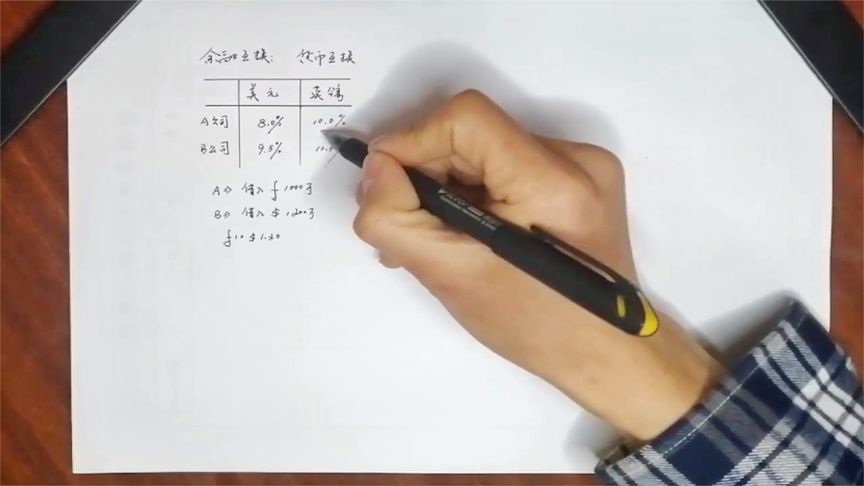 金融互换: 货币互换
美元 英镑
A公司 8.0% 10.0%
B公司 9.5%
A⇒ 借入 £1000万
B⇒ 借入 $1200万
£1= $1.20